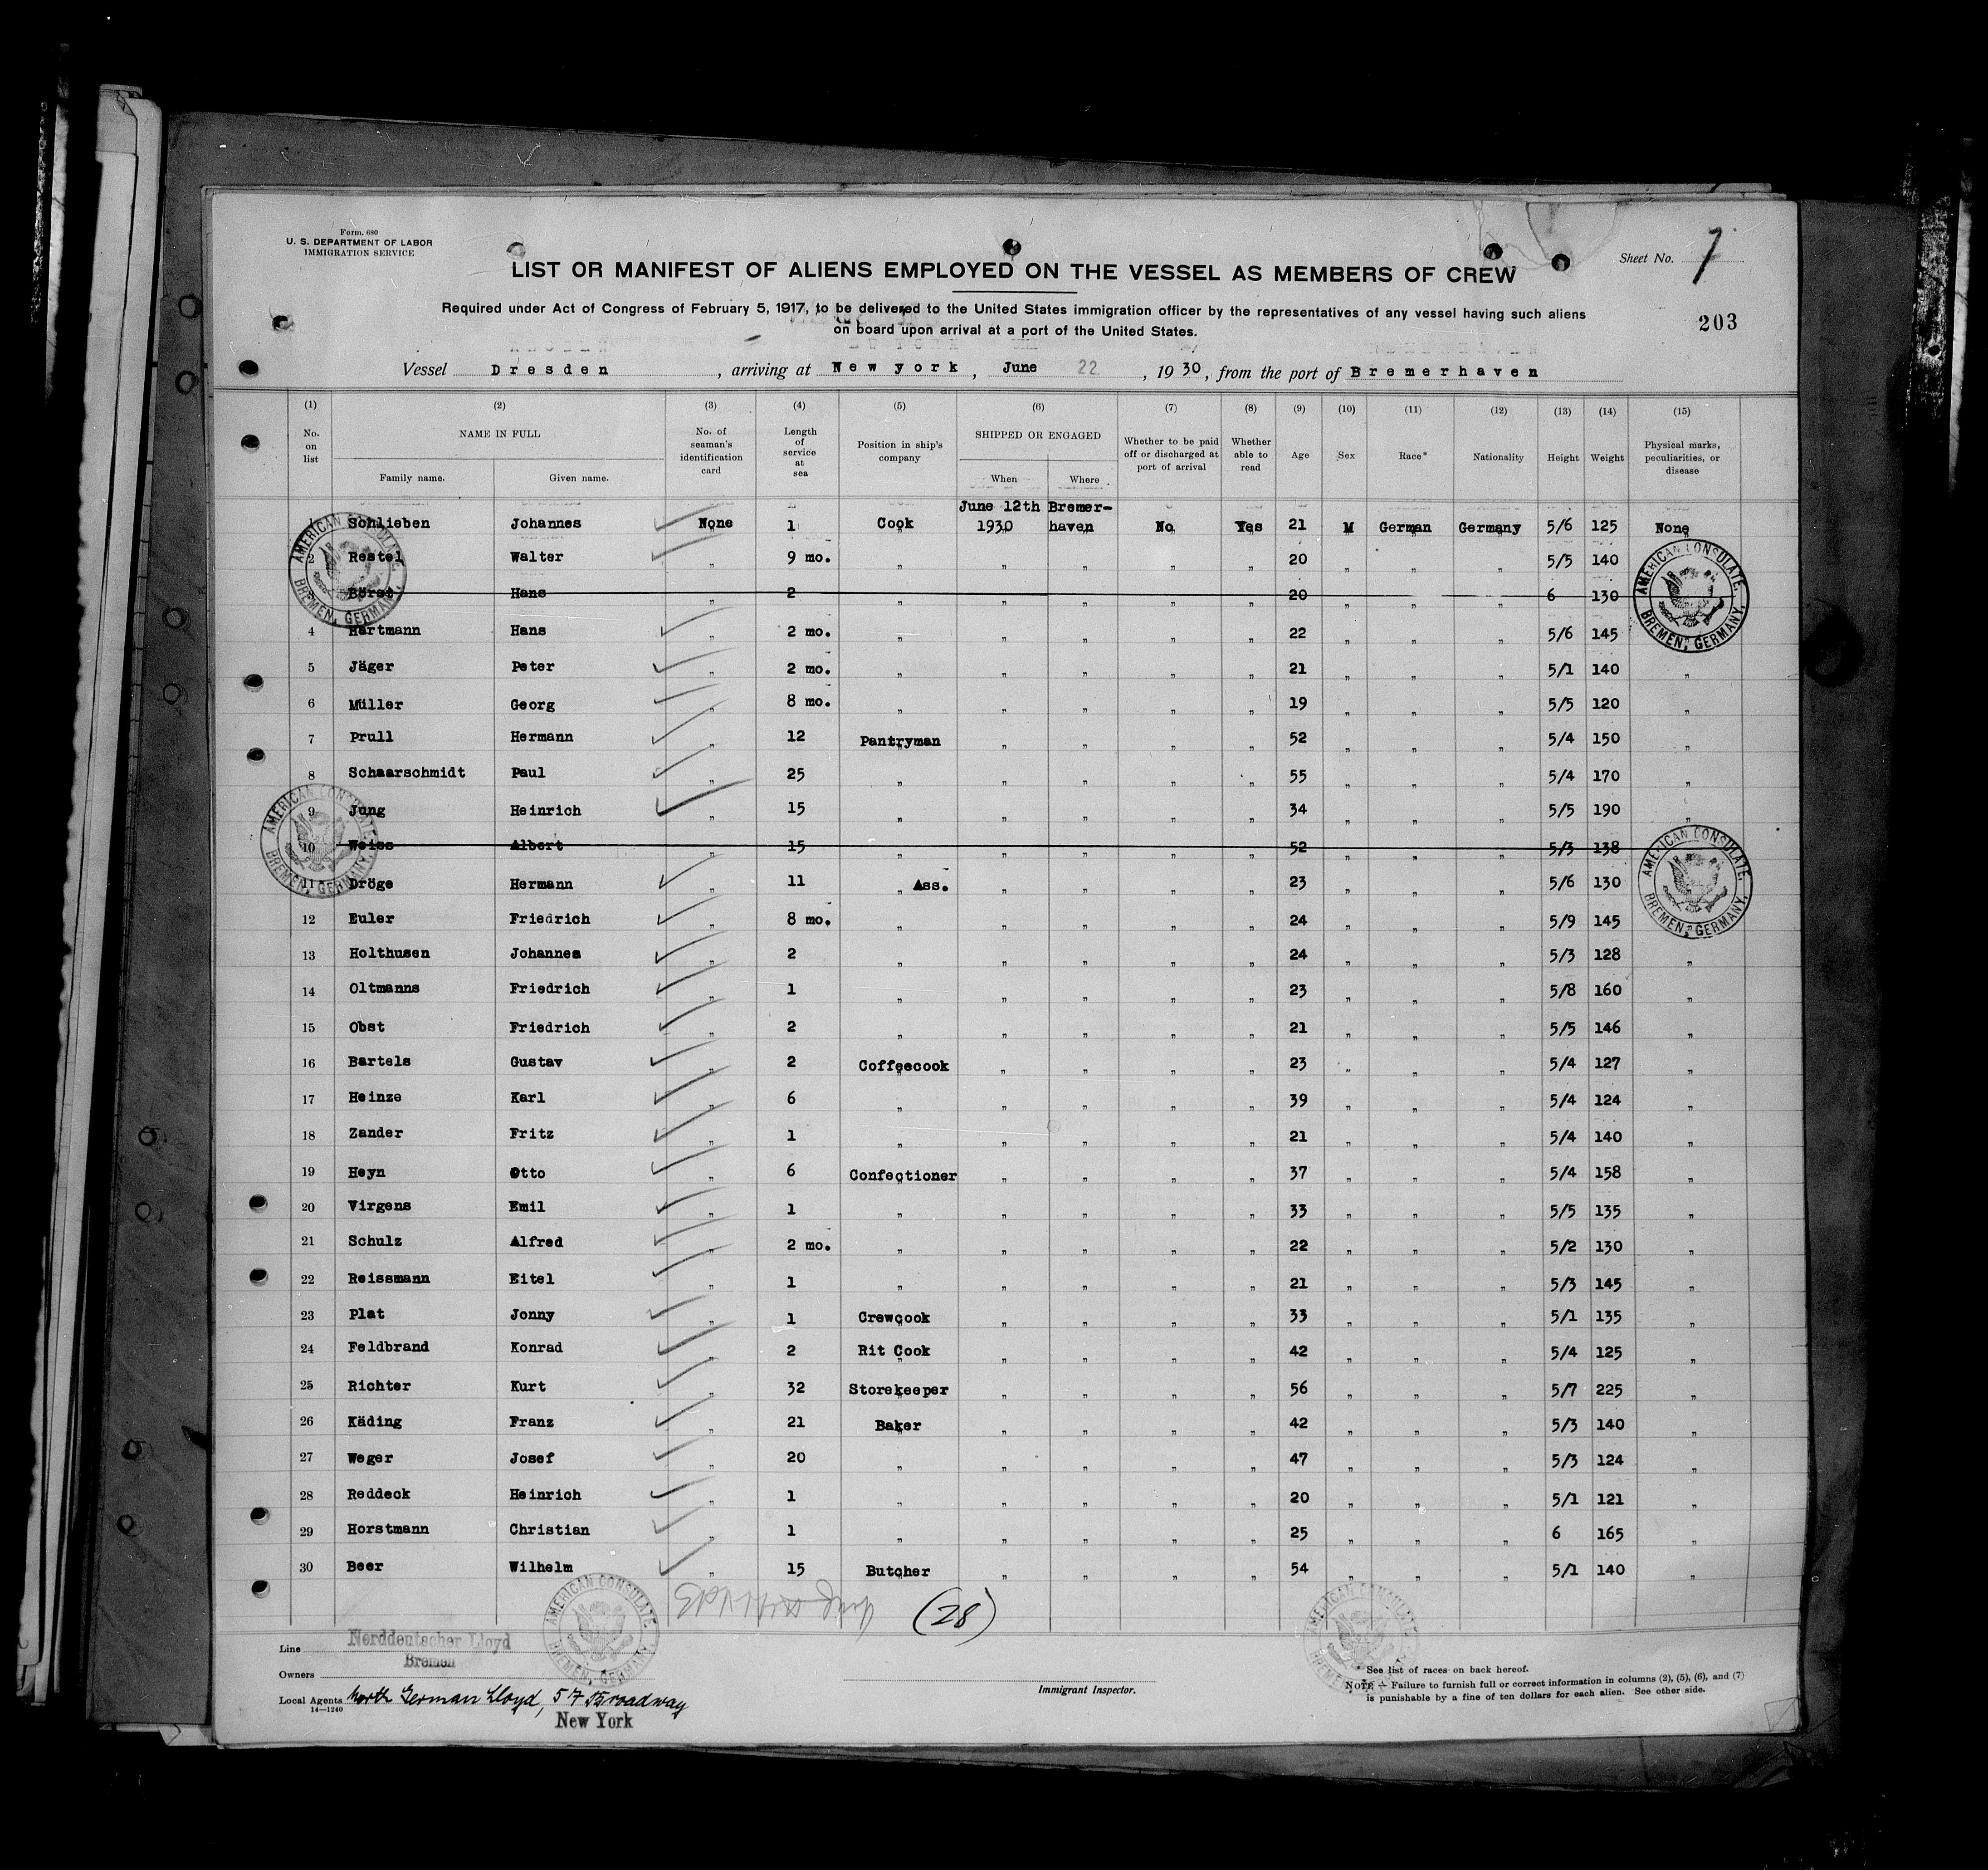 Form. 680
U. S. DEPARTMENT OF LABOR
IMMIGRATION SERVICE
Sheet No. 7
LIST OR MANIFEST OF ALIENS EMPLOYED ON THE VESSEL AS MEMBERS OF CREW
Required under Act of Congress of February 5, 1917, to be delivered to the United States immigration officer by the representatives of any vessel having such aliens
on board upon arrival at a port of the United States.
203
Vessel Dresden, arriving at New york, June 22, 1930, from the port of Bremerhaven
(1) (2) (3) (4) (5) (6) (7) (8) (9) (10) (11) (12) (13) (14) (15)
No. on list NAME IN FULL Family name. Given name. No. of seaman's identification card Length of service at sea Position in ship's company SHIPPED OR ENGAGED When Where Whether to be paid off or discharged at port of arrival Whether able to read Age Sex Race* Nationality Height Weight Physical marks, peculiarities, or disease
1 Schlieben Johannes None 1 Cook June 12th 1930 Bremer-haven No Yes 21 M German Germany 5/6 125 None
2 Restel Walter " 9 mo. " " " " " 20 " " " 5/5 140
3 Börst Hans " 2 " " " " " 20 " " " 6 130
4 Hartmann Hans " 2 mo. " " " " " 22 " " " 5/6 145
5 Jäger Peter " 2 mo. " " " " " 21 " " " 5/1 140 "
6 Müller Georg " 8 mo. " " " " " 19 " " " 5/5 120 "
7 Prull Hermann " 12 Pantryman " " " " 52 " " " 5/4 150 "
8 Schaarschmidt Paul " 25 " " " " " 55 " " " 5/4 170 "
9 Jung Heinrich " 15 " " " " " 34 " " " 5/5 190 "
10 Weiss Albert " 15 " " " " " 52 " " " 5/3 138
11 Dröge Hermann " 11 " Ass. " " " " 23 " " " 5/6 130
12 Euler Friedrich " 8 mo. " " " " " 24 " " " 5/9 145 "
13 Holthusen Johannes " 2 " " " " " 24 " " " 5/3 128 "
14 Oltmanns Friedrich " 1 " " " " " 23 " " " 5/8 160 "
15 Obst Friedrich " 2 " " " " " 21 " " " 5/5 146 "
16 Bartels Gustav " 2 Coffeecook " " " " 23 " " " 5/4 127 "
17 Heinze Karl " 6 " " " " " 39 " " " 5/4 124 "
18 Zander Fritz " 1 " " " " " 21 " " " 5/4 140 "
19 Heyn Otto " 6 Confectioner " " " " 37 " " " 5/4 158 "
20 Virgens Emil " 1 " " " " " 33 " " " 5/5 135 "
21 Schulz Alfred " 2 mo. " " " " " 22 " " " 5/2 130 "
22 Reissmann Eitel " 1 " " " " " 21 " " " 5/3 145 "
23 Plat Jonny " 1 Crewcook " " " " 33 " " " 5/1 135 "
24 Feldbrand Konrad " 2 Rit Cook " " " " 42 " " " 5/4 125 "
25 Richter Kurt " 32 Storekeeper " " " " 56 " " " 5/7 225 "
26 Käding Franz " 21 Baker " " " " 42 " " " 5/3 140 "
27 Weger Josef " 20 " " " " " 47 " " " 5/3 124 "
28 Reddeck Heinrich " 1 " " " " " 20 " " " 5/1 121 "
29 Horstmann Christian " 1 " " " " " 25 " " " 6 165 "
30 Beer Wilhelm " 15 Butcher " " " " 54 " " " 5/1 140 "
AMERICAN CONSULATE, BREMEN, GERMANY.
AMERICAN CONSULATE, BREMEN, GERMANY.
AMERICAN CONSULATE, BREMEN, GERMANY.
AMERICAN CONSULATE, BREMEN, GERMANY.
AMERICAN CONSULATE, BREMEN, GERMANY.
AMERICAN CONSULATE, BREMEN, GERMANY.
(28)
Line Norddeutscher Lloyd
Bremen
Owners
Local Agents North German Lloyd, 57 Broadway
New York
14—1240
Immigrant Inspector.
* See list of races on back hereof.
NOTE — Failure to furnish full or correct information in columns (2), (5), (6), and (7)
is punishable by a fine of ten dollars for each alien. See other side.